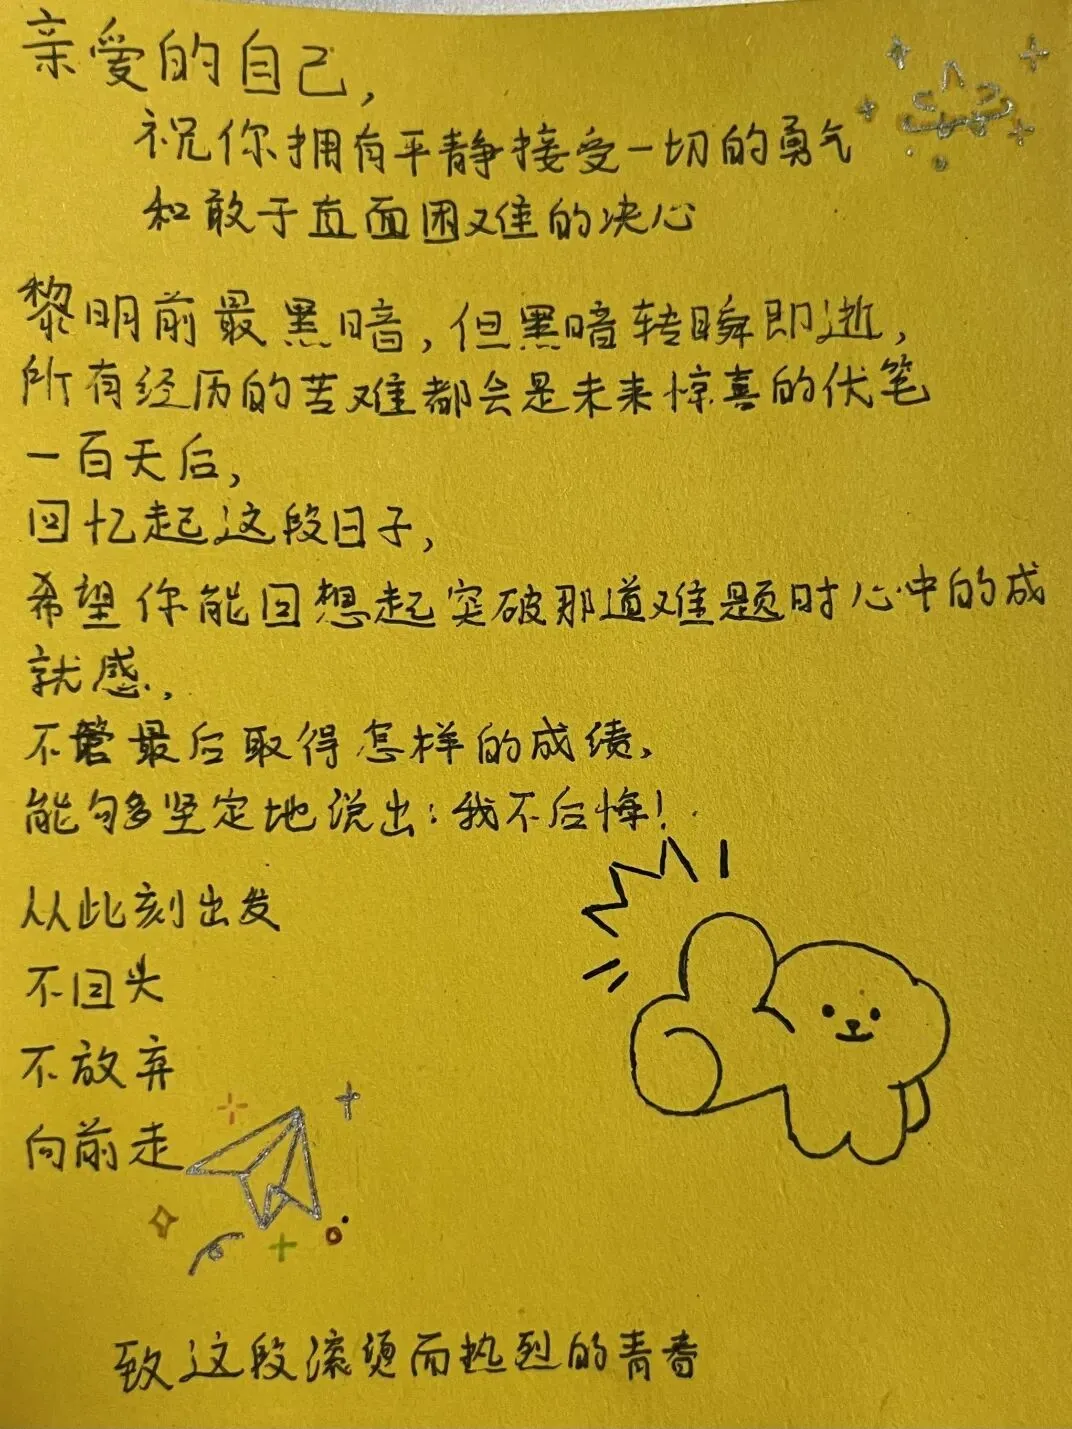 亲爱的自己,
祝你拥有平静接受一切的勇气
和敢于直面困难的决心
黎明前最黑暗,但黑暗转瞬即逝,
所有经历的苦难都会是未来惊喜的伏笔
一百天后,
回忆起这段日子,
希望你能回想起突破那道难题时心中的成
就感,
不管最后取得怎样的成绩,
能够坚定地说出:我不后悔!
从此刻出发
不回头
不放弃
向前走
致这段滚烫而热烈的青春